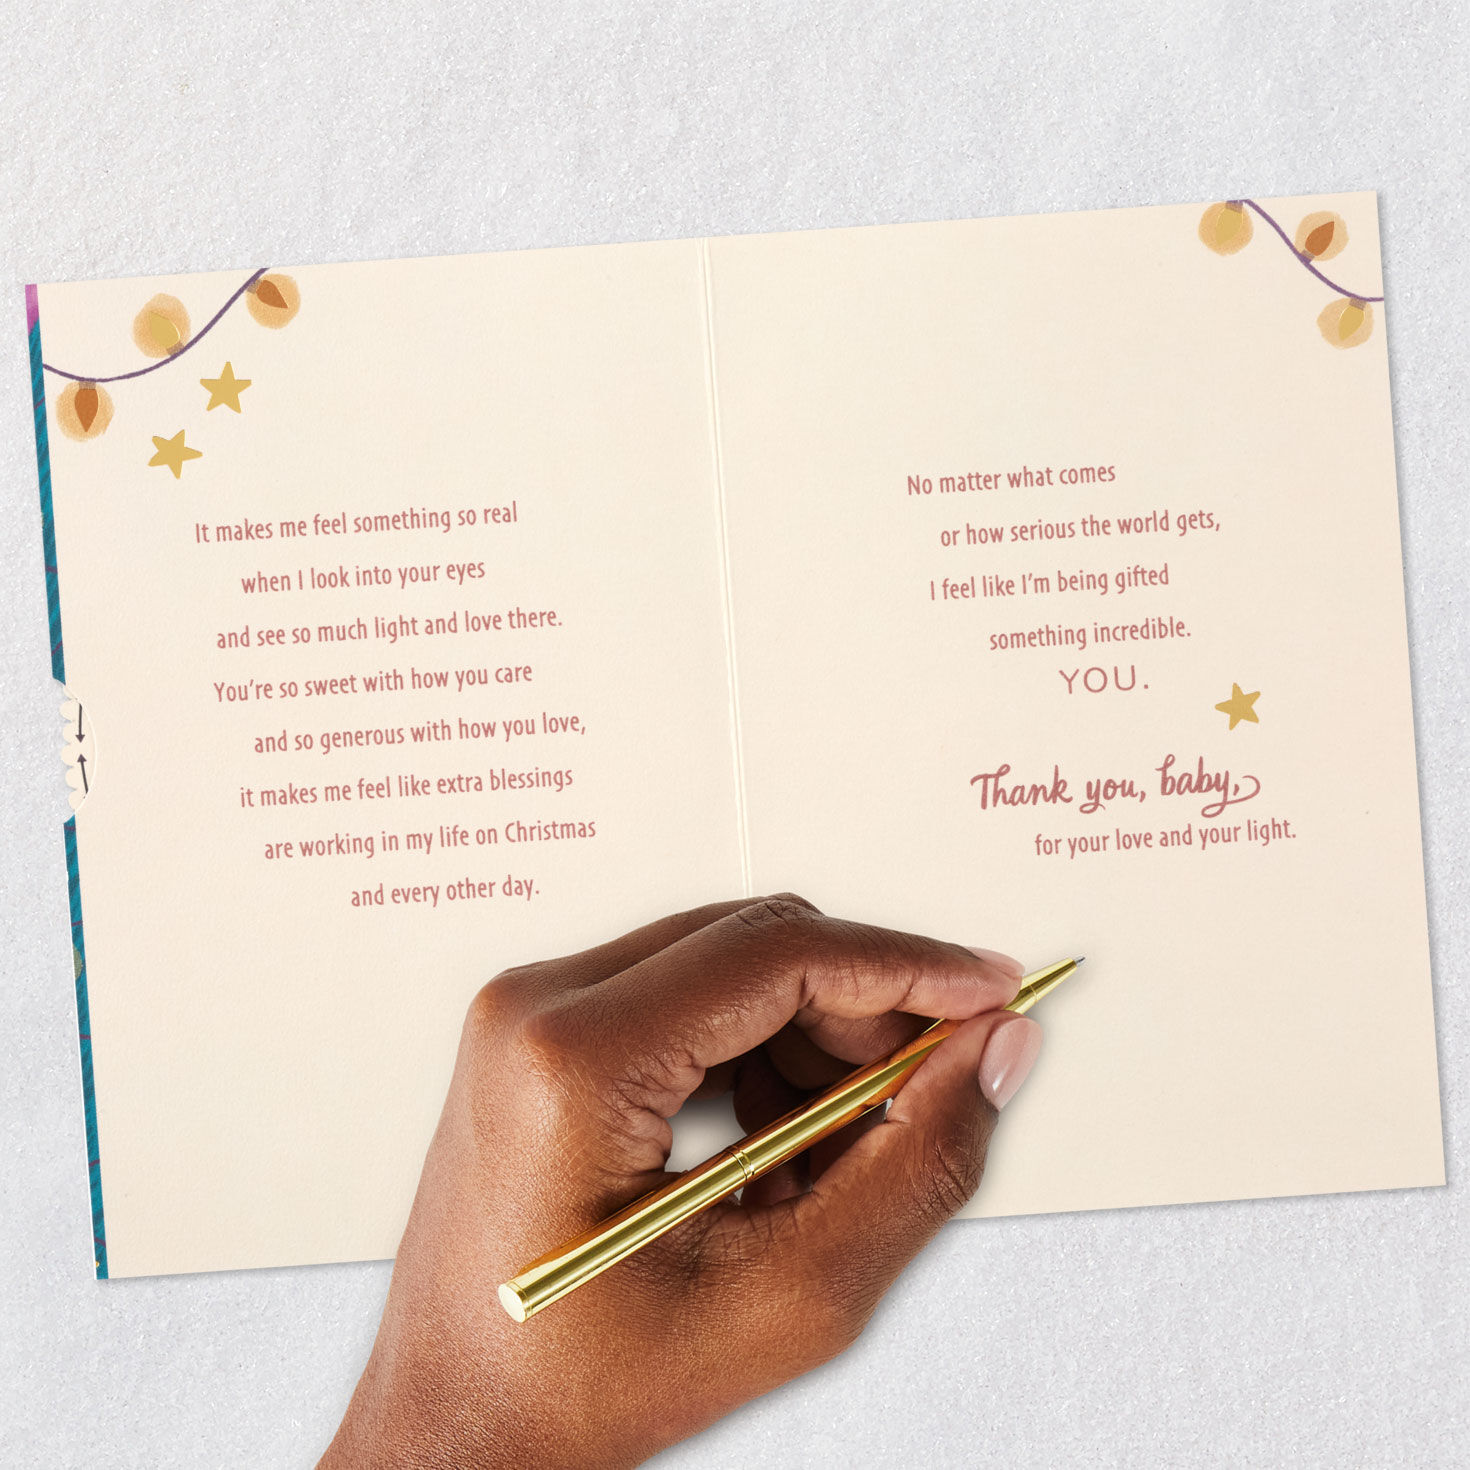 It makes me feel something so real
when I look into your eyes
and see so much light and love there.
You're so sweet with how you care
and so generous with how you love,
it makes me feel like extra blessings
are working in my life on Christmas
and every other day.
No matter what comes
or how serious the world gets,
I feel like I'm being gifted
something incredible.
YOU.
Thank you, baby,
for your love and your light.